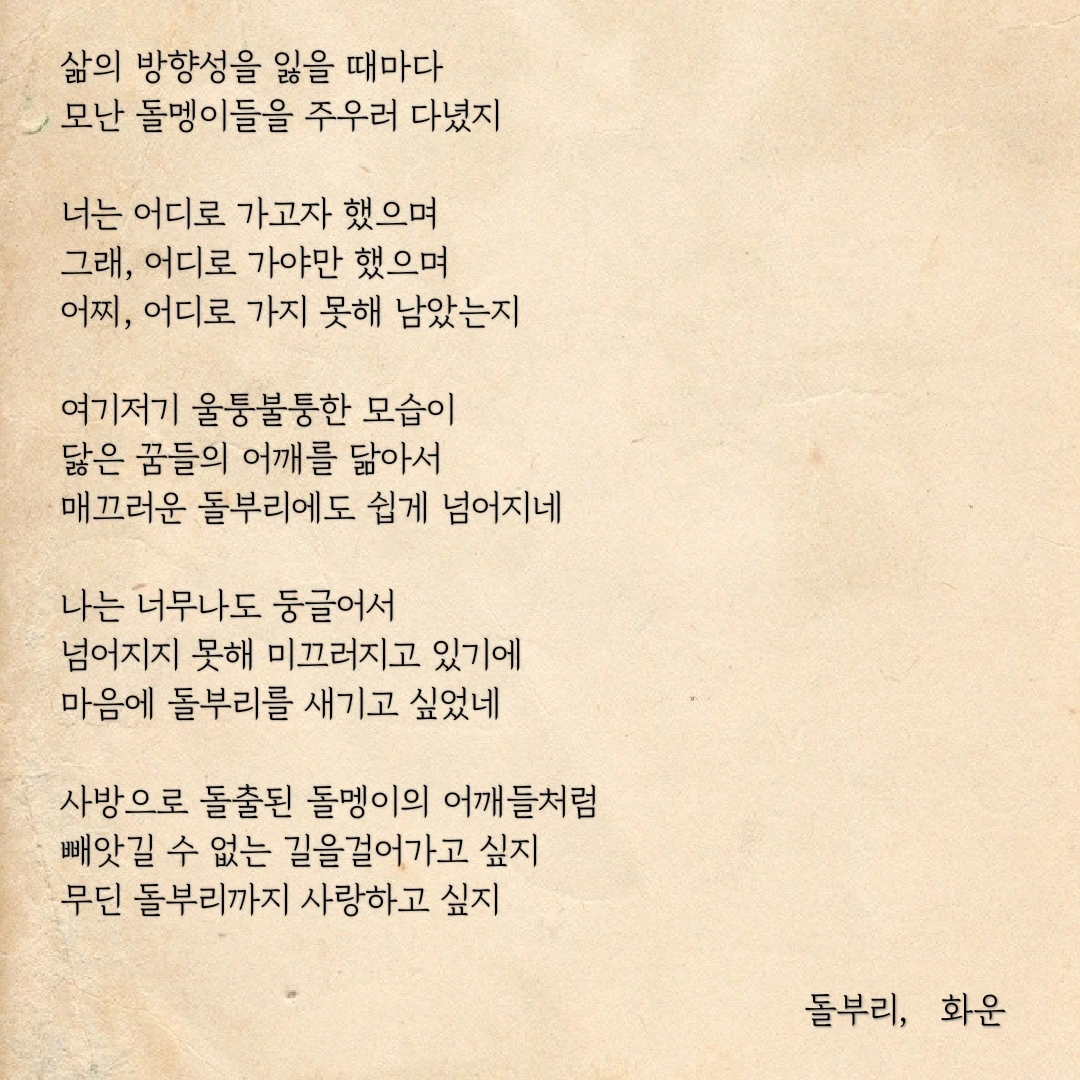 삶의 방향성을 잃을 때마다
모난 돌멩이들을 주우러 다녔지
너는 어디로 가고자 했으며
그래, 어디로 가야만 했으며
어찌, 어디로 가지 못해 남았는지
여기저기 울퉁불퉁한 모습이
닳은 꿈들의 어깨를 닮아서
매끄러운 돌부리에도 쉽게 넘어지네
나는 너무나도 둥글어서
넘어지지 못해 미끄러지고 있기에
마음에 돌부리를 새기고 싶었네
사방으로 돌출된 돌멩이의 어깨들처럼
빼앗길 수 없는 길을걸어가고 싶지
무딘 돌부리까지 사랑하고 싶지
돌부리, 화운